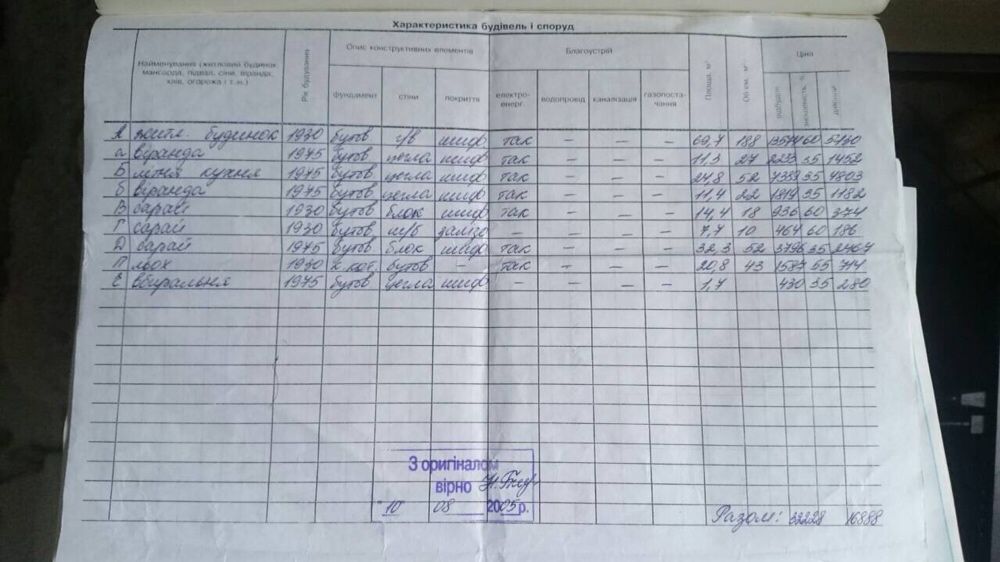 Характеристика будівель і споруд
Найменування (житловий будинок, мансарда, підвал, сіни, віранда, хлів, огорожа і т.ін.)
Рік будування
Опис конструктивних елементів
Благоустрій
Площа, м²
Об'єм, м³
Ціна
фундамент стіни покриття електро-енерг. водопровід каналізація газопоста-чання
А житл. будинок 1930 бутов г/в шиф так – – – 69,7 188 60 5730
а віранда 1975 бутов цегла шиф так – – – 11,3 27 2233 35 1452
Б літня кухня 1975 бутов цегла шиф так – – – 24,8 52 35 4803
б віранда 1975 бутов цегла шиф так – – – 11,4 22 1819 35 1182
В сарай 1930 бутов блок шиф так – – – 14,4 18 936 60 374
Г сарай 1930 бутов залізо – – – – 7,7 10 464 60 186
Д сарай 1975 бутов блок шиф так – – – 32,3 52 3796 35 2467
П льох 1930 бутов – так – – – 20,8 43 1587 55 714
Е вбиральня 1975 бутов цегла шиф – – – – 1,7 430 35 280
З оригіналом
вірно
"10 08 2005 р.
Разом: 32228 16888